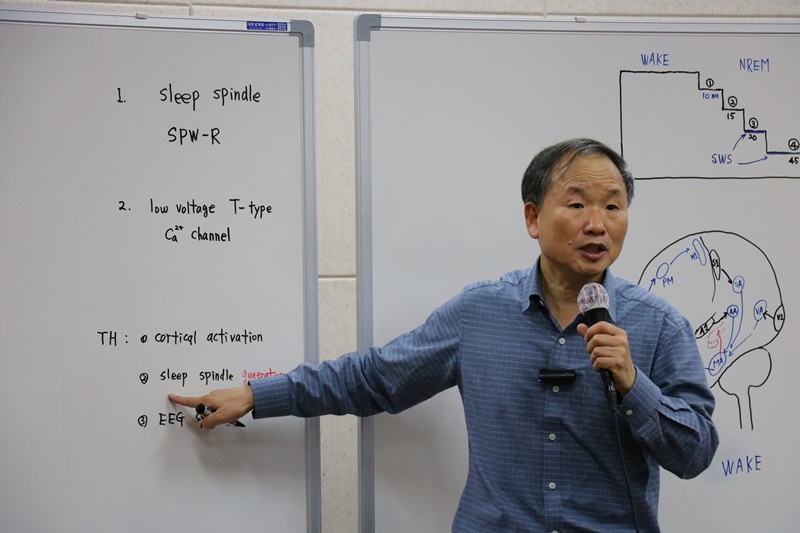 1. sleep spindle
SPW-R
2. low voltage T-type
Ca²⁺ channel
TH : ① cortical activation
② sleep spindle
③ EEG
WAKE
NREM
①
10
②
15
③
20
④
45
SWS
PM
M1
S1
SA
AA
VA
V1
A1
MA
WAKE